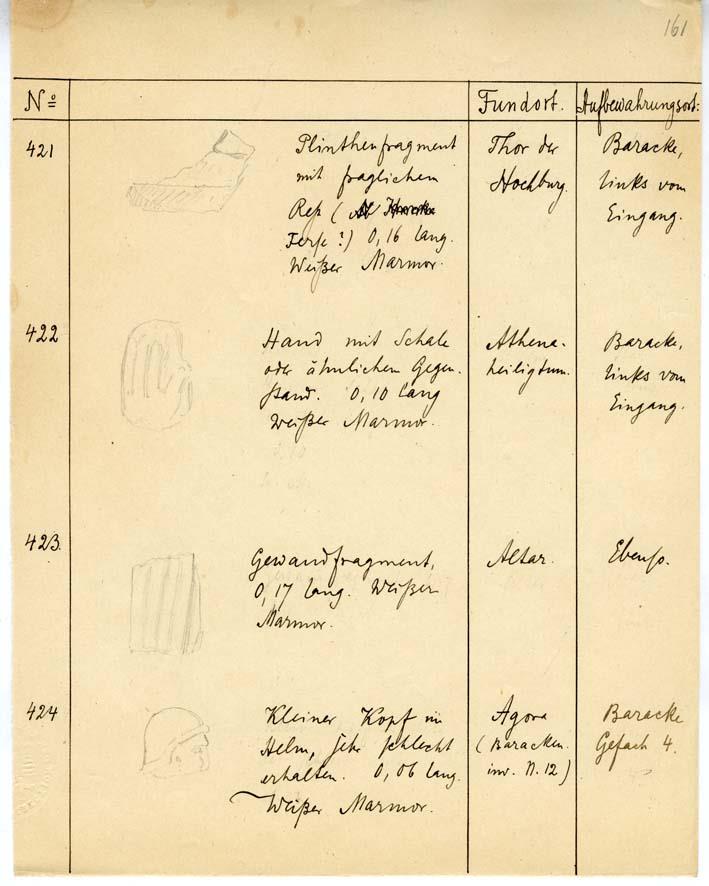 161
Nº
Fundort.
Aufbewahrungsort:
421
Plinthenfragment
mit fraglichem
Rest (
Ferse?) 0,16 lang.
Weißer Marmor.
Thor der
Hochburg.
Baracke,
links vom
Eingang.
422
Hand mit Schale
oder ähnlichem Gegen-
stand. 0,10 lang
Weißer Marmor.
Athena-
heiligtum.
Baracke,
links vom
Eingang.
423.
Gewandfragment,
0,17 lang. Weißer
Marmor.
Altar.
Ebenso.
424
Kleiner Kopf im
Helm, sehr schlecht
erhalten. 0,06 lang.
Weißer Marmor.
Agora
(Baracken-
inv. N. 12)
Baracke
Gefach 4.